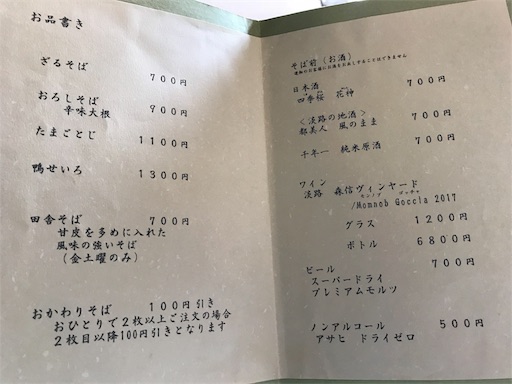 お品書き
ざるそば
700円
おろしそば
辛味大根 900円
たまごとじ
1100円
鴨せいろ
1300円
田舎そば
甘皮を多めに入れた
風味の強いそば
(金土曜のみ)
おかわりそば 100円引き
おひとりで2枚以上ご注文の場合
2枚目以降100円引きとなります
そば前(お酒)
運転のお客様にお酒をお出しすることはできません
日本酒 700円
四季桜 花神
<淡路の地酒>
都美人 風のまま 700円
千年一 純米原酒 700円
ワイン
淡路 森信ヴィンヤード
/Momnob Goccia 2017
グラス 1200円
ボトル 6800円
ビール 700円
スーパードライ
プレミアムモルツ
ノンアルコール 500円
アサヒ ドライゼロ